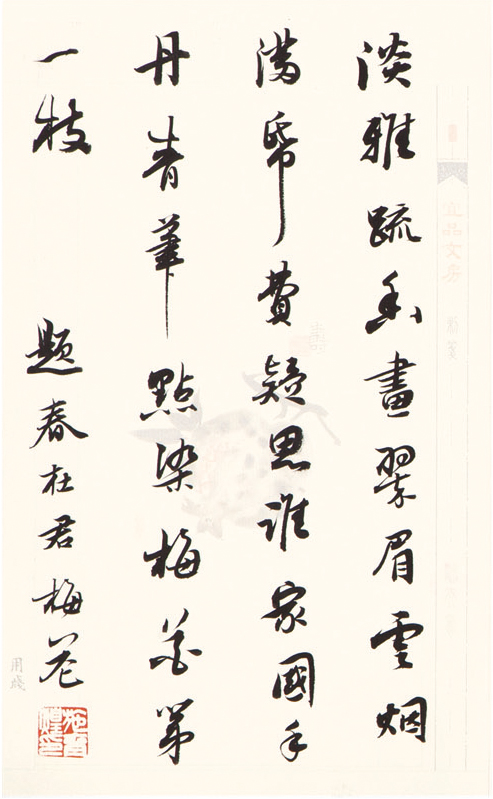 淡雅疏香畫翠眉雲烟
滿帋費疑思誰家國手
丹青筆點染梅花第
一枝
題春杜君梅花
宜品文房
用牋